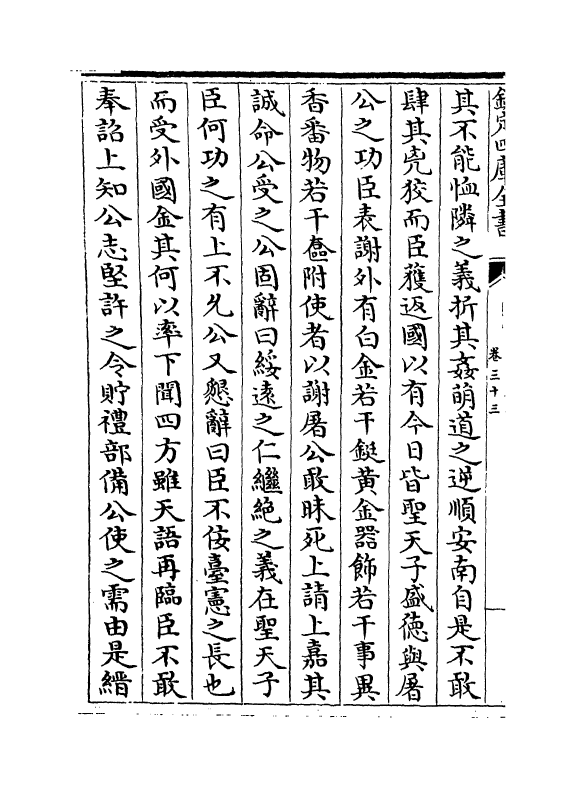 欽定四庫全書
卷三十三
其不能恤隣之義折其姦萌道之逆順安南自是不敢
肆其兇狡而臣獲返國以有今日皆聖天子盛徳與屠
公之功臣表謝外有白金若干鋌黄金器飾若干事異
香番物若干奩附使者以謝屠公敢昧死上請上嘉其
誠命公受之公固辭曰綏遠之仁繼絶之義在聖天子
臣何功之有上不允公又懇辭曰臣不佞臺憲之長也
而受外國金其何以率下聞四方雖天語再臨臣不敢
奉詔上知公志堅許之令貯禮部備公使之需由是縉